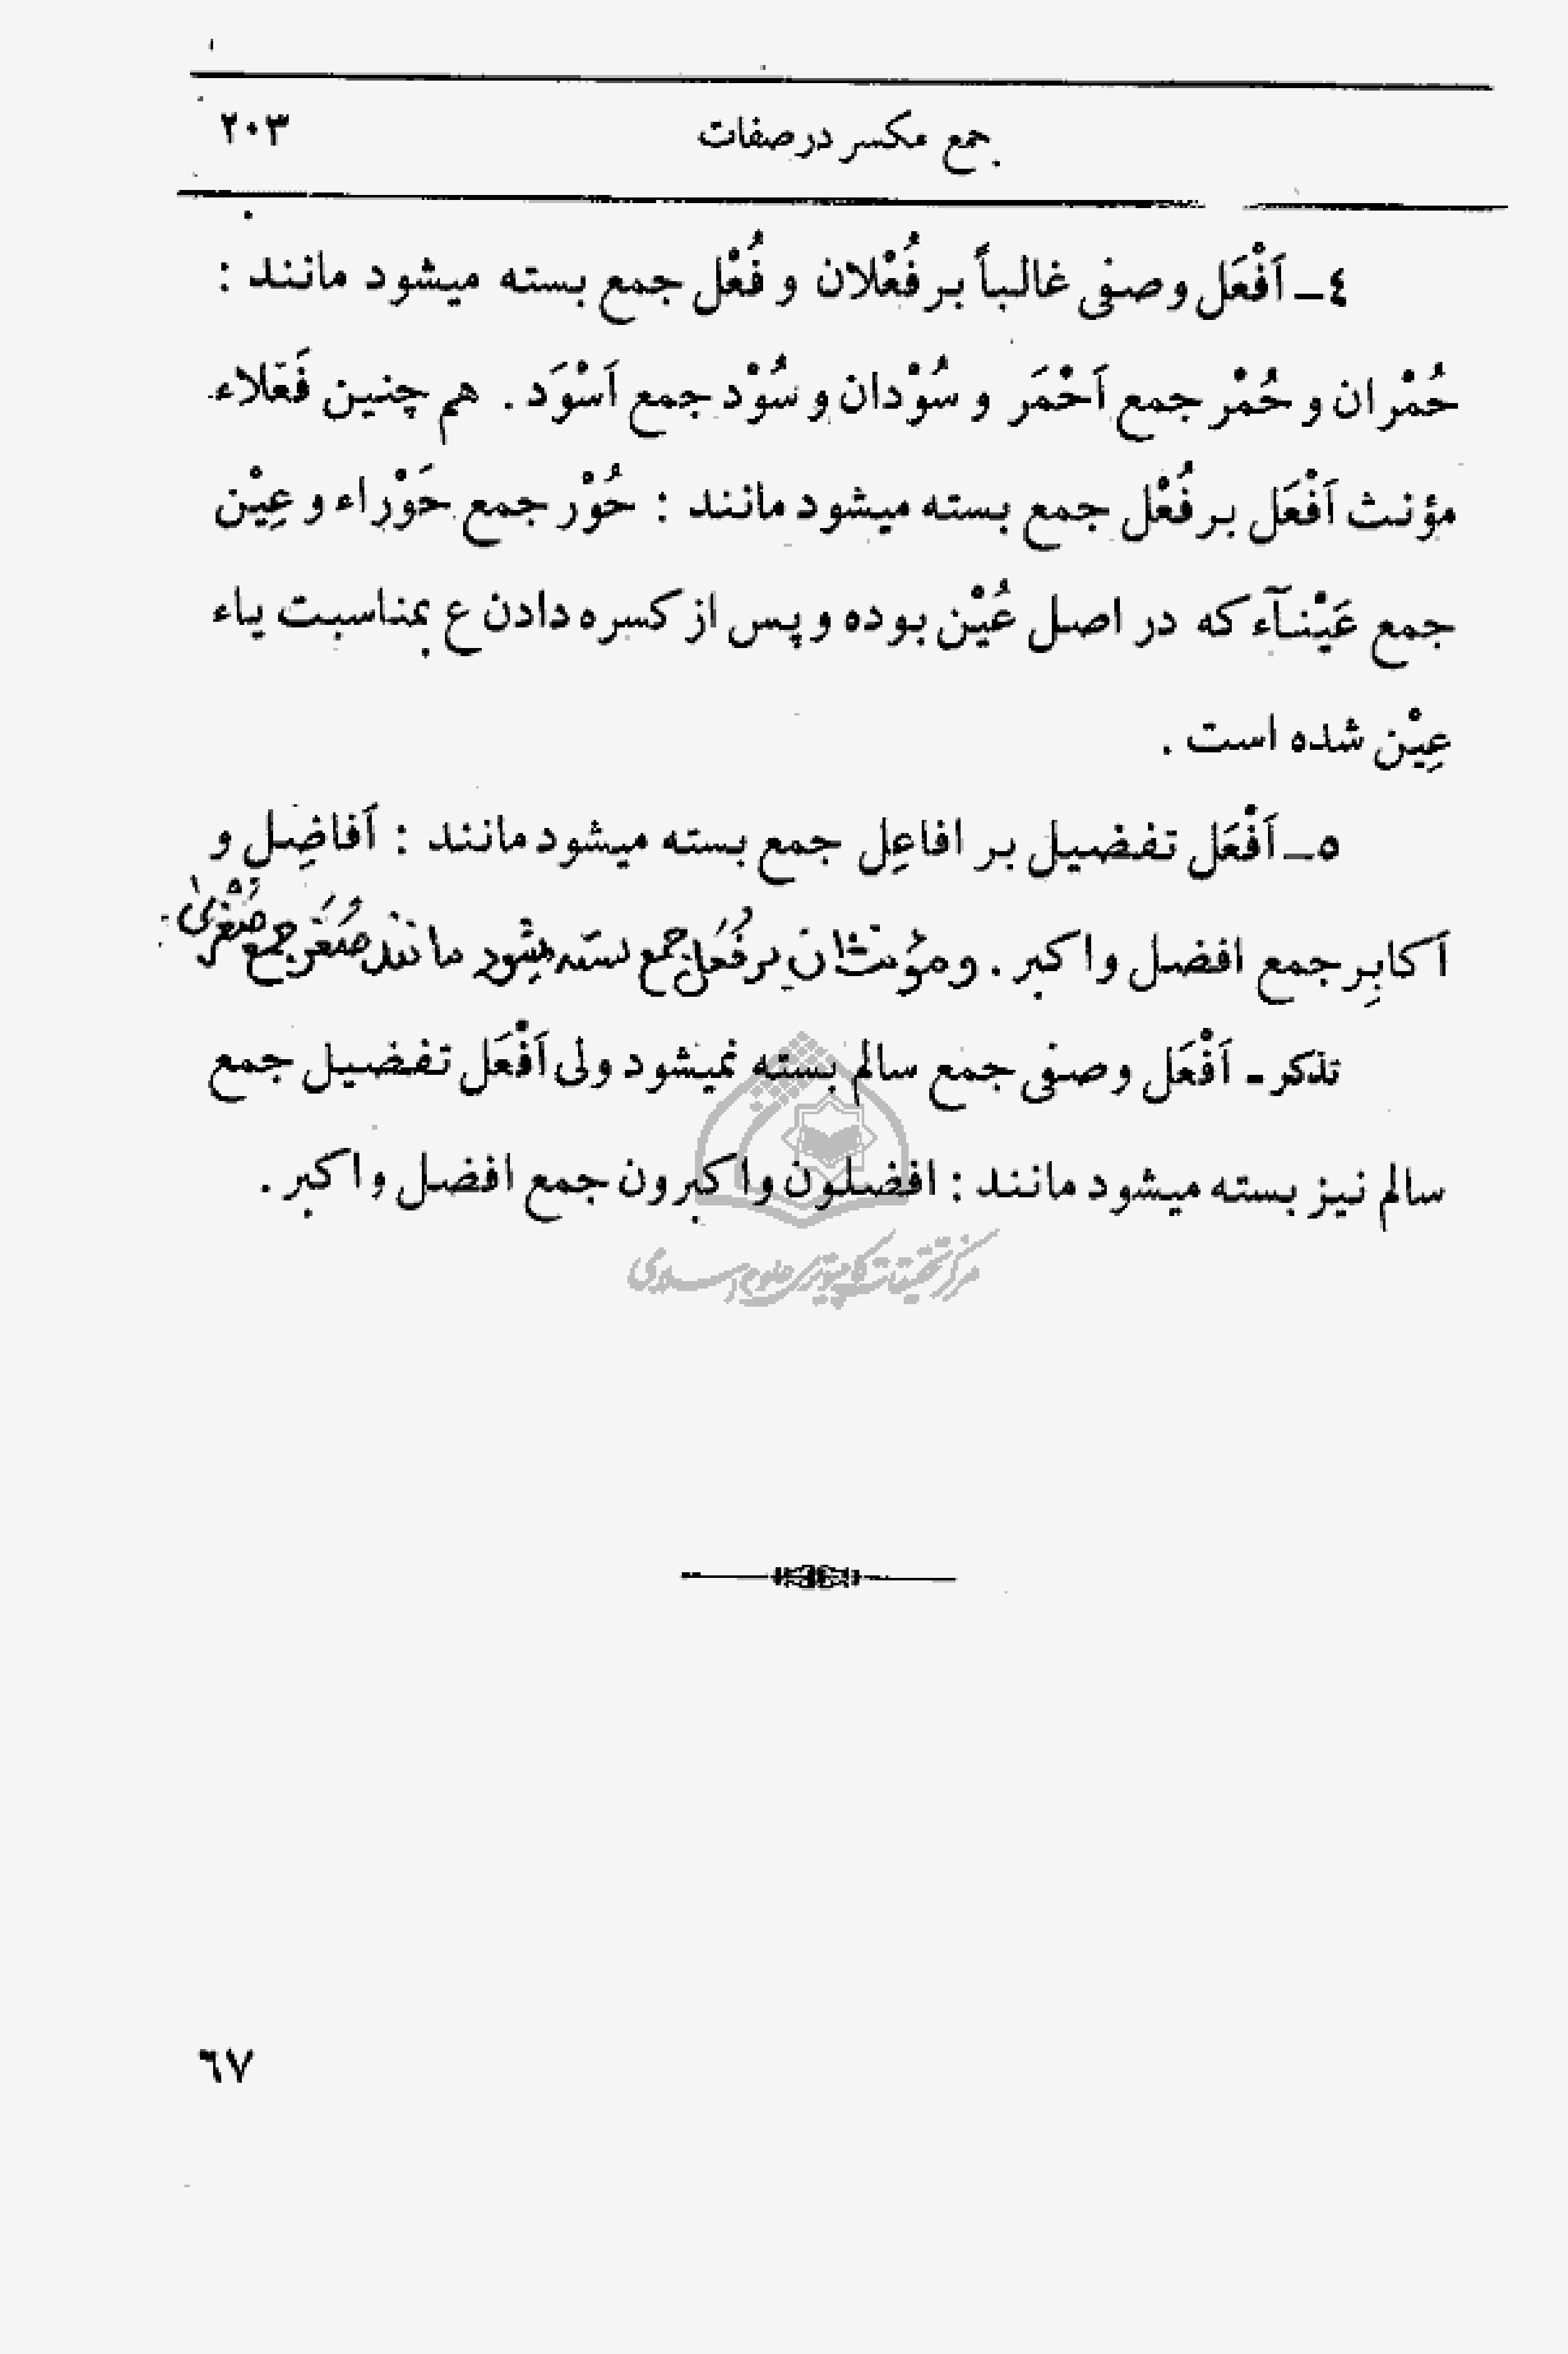 جمع مکسر در صفات ٢٠٣
٤ـ اَفْعَل وصفی غالباً بر فُعْلان و فُعْل جمع بسته میشود مانند :
حُمْران و حُمْر جمع اَحْمَر و سُوْدان و سُوْد جمع اَسْوَد . هم چنین فَعْلاء
مؤنث اَفْعَل بر فُعْل جمع بسته میشود مانند : حُوْر جمع حَوْراء و عِیْن
جمع عَیْنآء که در اصل عُیْن بوده و پس از کسره دادن ع بمناسبت یاء
عِیْن شده است .
٥ـ اَفْعَل تفضیل بر افاعِل جمع بسته میشود مانند : اَفاضِل و
اَکابِر جمع افضل و اکبر . و مؤنث آن بر فُعَل جمع بسته میشود مانند صُغَر جمع صُغْرىٰ
تذکر ـ اَفْعَل وصفی جمع سالم بسته نمیشود ولی اَفْعَل تفضیل جمع
سالم نیز بسته میشود مانند : افضلون و اکبرون جمع افضل و اکبر .
مرکز تحقیقات کامپیوتری علوم اسلامی
٦٧